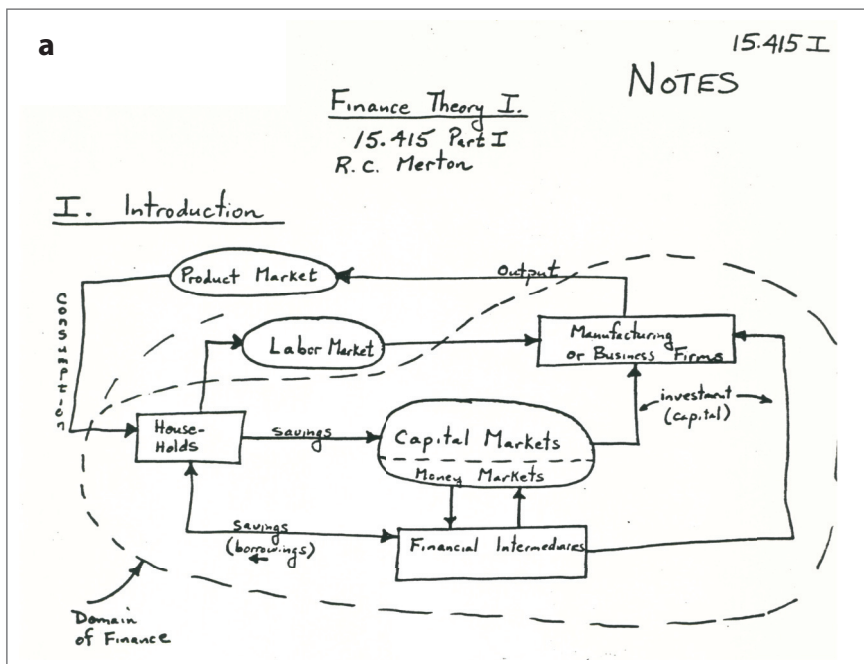 a
15.415 I
NOTES
Finance Theory I.
15.415 Part I
R.C. Merton
I. Introduction
Product Market
Output
Consumption
Labor Market
Manufacturing
or Business Firms
investment
(capital)
House-
Holds
Savings
Capital Markets
Money Markets
Savings
(borrowings)
Financial Intermediaries
Domain
of Finance